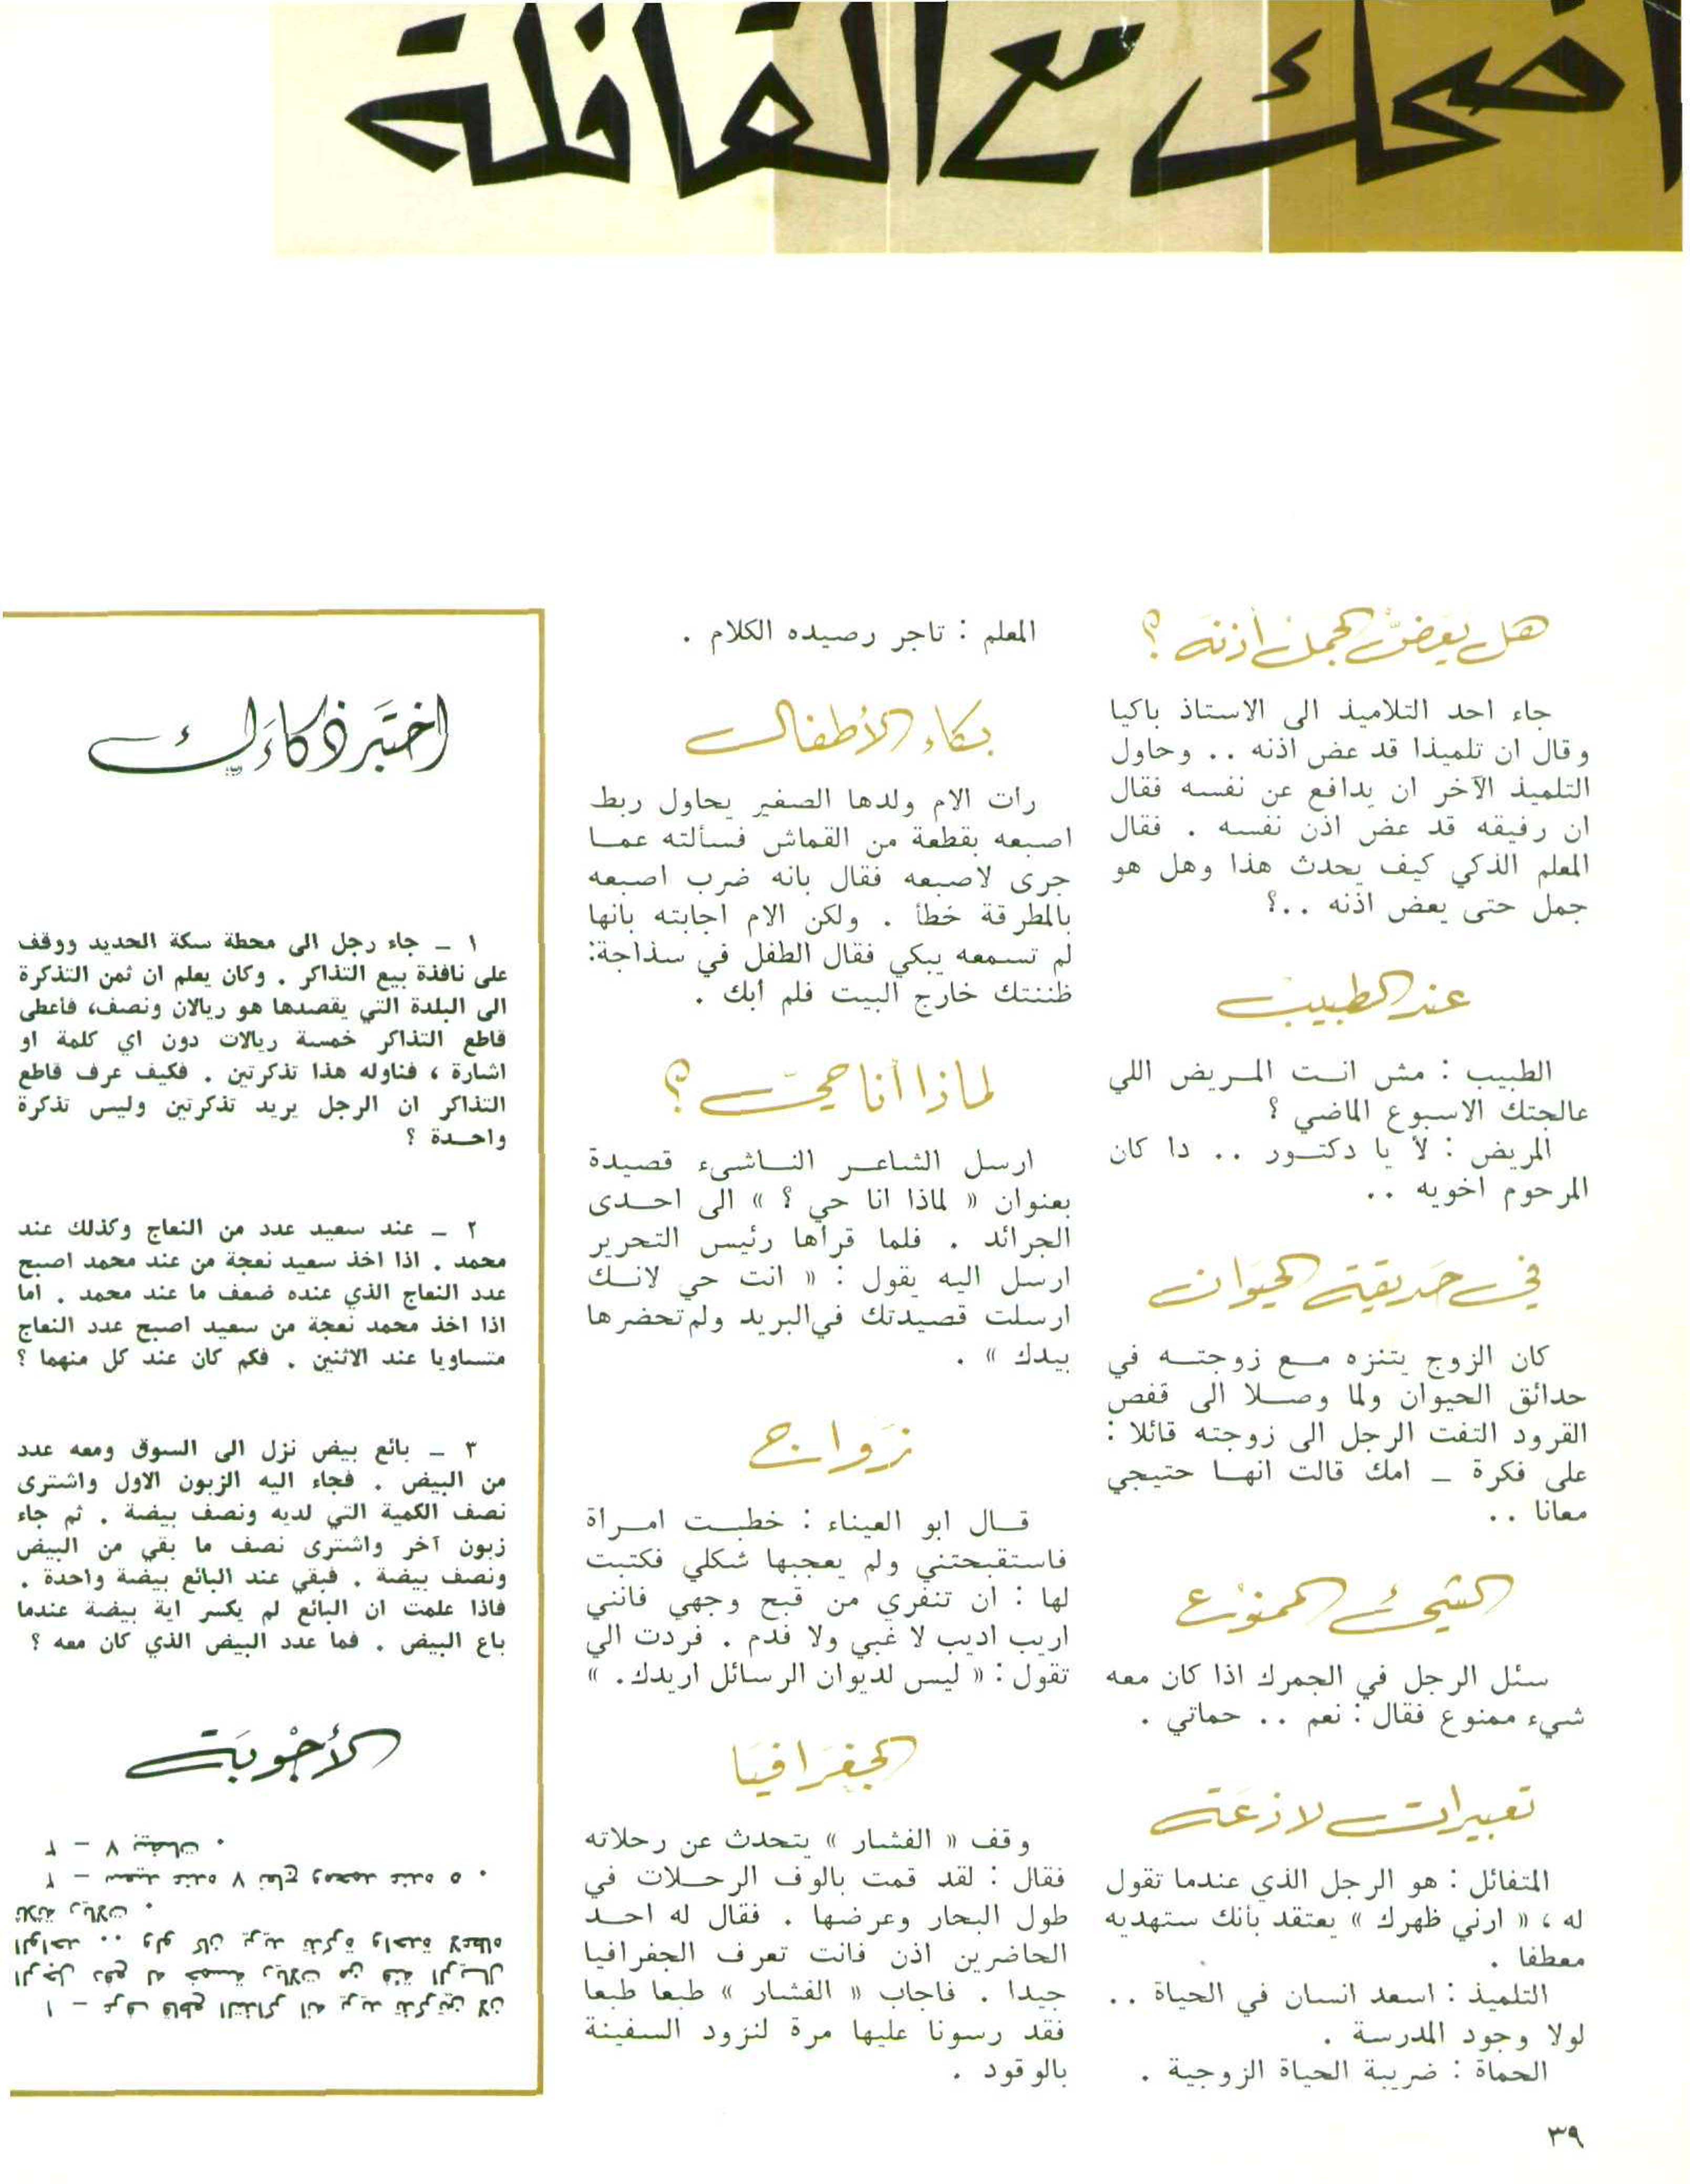 اضحك مع القافلة
هل يعضّ الجمل أذنه ؟
جاء احد التلاميذ الى الاستاذ باكيا
وقال ان تلميذا قد عض اذنه .. وحاول
التلميذ الآخر ان يدافع عن نفسه فقال
ان رفيقه قد عض اذن نفسه . فقال
المعلم الذكي كيف يحدث هذا وهل هو
جمل حتى يعض اذنه ..؟
عند الطبيب
الطبيب : مش انت المريض اللي
عالجتك الاسبوع الماضي ؟
المريض : لا يا دكتور .. دا كان
المرحوم اخويه ..
في حديقة الحيوان
كان الزوج يتنزه مع زوجته في
حدائق الحيوان ولما وصلا الى قفص
القرود التفت الرجل الى زوجته قائلا :
على فكرة _ امك قالت انها حتيجي
معانا ..
الشيء الممنوع
سئل الرجل في الجمرك اذا كان معه
شيء ممنوع فقال : نعم .. حماتي .
تعبيرات لاذعة
المتفائل : هو الرجل الذي عندما تقول
له ، « ارني ظهرك » يعتقد بأنك ستهديه
معطفا .
التلميذ : اسعد انسان في الحياة ..
لولا وجود المدرسة .
الحماة : ضريبة الحياة الزوجية .
المعلم : تاجر رصيده الكلام .
بكاء الأطفال
رات الام ولدها الصغير يحاول ربط
اصبعه بقطعة من القماش فسألته عما
جرى لاصبعه فقال بانه ضرب اصبعه
بالمطرقة خطأ . ولكن الام اجابته بانها
لم تسمعه يبكي فقال الطفل في سذاجة:
ظننتك خارج البيت فلم أبك .
لماذا أنا حيّ ؟
ارسل الشاعر الناشىء قصيدة
بعنوان « لماذا انا حي ؟ » الى احدى
الجرائد . فلما قرأها رئيس التحرير
ارسل اليه يقول : « انت حي لانك
ارسلت قصيدتك في البريد ولم تحضرها
بيدك » .
زواج
قال ابو العيناء : خطبت امرأة
فاستقبحتني ولم يعجبها شكلي فكتبت
لها : ان تنفري من قبح وجهي فانني
اريب اديب لا غبي ولا فدم . فردت الي
تقول : « ليس لديوان الرسائل اريدك. »
الجغرافيا
وقف « الفشار » يتحدث عن رحلاته
فقال : لقد قمت بالوف الرحلات في
طول البحار وعرضها . فقال له احد
الحاضرين اذن فانت تعرف الجغرافيا
جيدا . فاجاب « الفشار » طبعا طبعا
فقد رسونا عليها مرة لنزود السفينة
بالوقود .
اختبر ذكاءك
١ _ جاء رجل الى محطة سكة الحديد ووقف
على نافذة بيع التذاكر . وكان يعلم ان ثمن التذكرة
الى البلدة التي يقصدها هو ريالان ونصف، فأعطى
قاطع التذاكر خمسة ريالات دون اي كلمة او
اشارة ، فناوله هذا تذكرتين . فكيف عرف قاطع
التذاكر ان الرجل يريد تذكرتين وليس تذكرة
واحدة ؟
٢ _ عند سعيد عدد من النعاج وكذلك عند
محمد . اذا اخذ سعيد نعجة من عند محمد اصبح
عدد النعاج الذي عنده ضعف ما عند محمد . أما
اذا اخذ محمد نعجة من سعيد اصبح عدد النعاج
متساويا عند الاثنين . فكم كان عند كل منهما ؟
٣ _ بائع بيض نزل الى السوق ومعه عدد
من البيض . فجاء اليه الزبون الاول واشترى
نصف الكمية التي لديه ونصف بيضة . ثم جاء
زبون آخر واشترى نصف ما بقي من البيض
ونصف بيضة . فبقي عند البائع بيضة واحدة .
فاذا علمت ان البائع لم يكسر اية بيضة عندما
باع البيض . فما عدد البيض الذي كان معه ؟
الأجوبة
١ – عرف قاطع التذاكر انه يريد تذكرتين لان
الرجل دفع له خمسة ريالات من فئة الريال
الواحد .. ولو كان يريد تذكرة واحدة لاعطاه
ثلاثة ريالات .
٢ – سعيد عنده ٧ نعاج ومحمد عنده ٥ .
٣ – ٧ بيضات .
٣٩